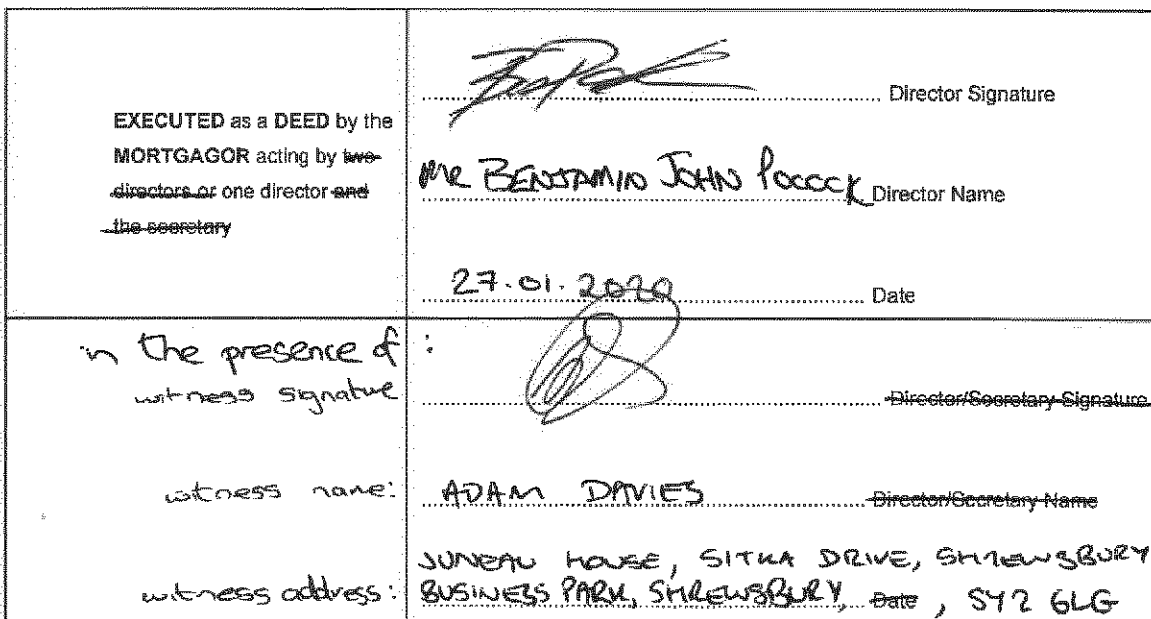 EXECUTED as a DEED by the
MORTGAGOR acting by two
directors or one director and
the secretary
Director Signature
Mr BENJAMIN JOHN POCOCK Director Name
27.01.2020 Date
in the presence of :
witness signature Director/Secretary Signature
witness name: ADAM DAVIES Director/Secretary Name
JUNEAU HOUSE, SITKA DRIVE, SHREWSBURY
witness address: BUSINESS PARK, SHREWSBURY, Date , SY2 6LG